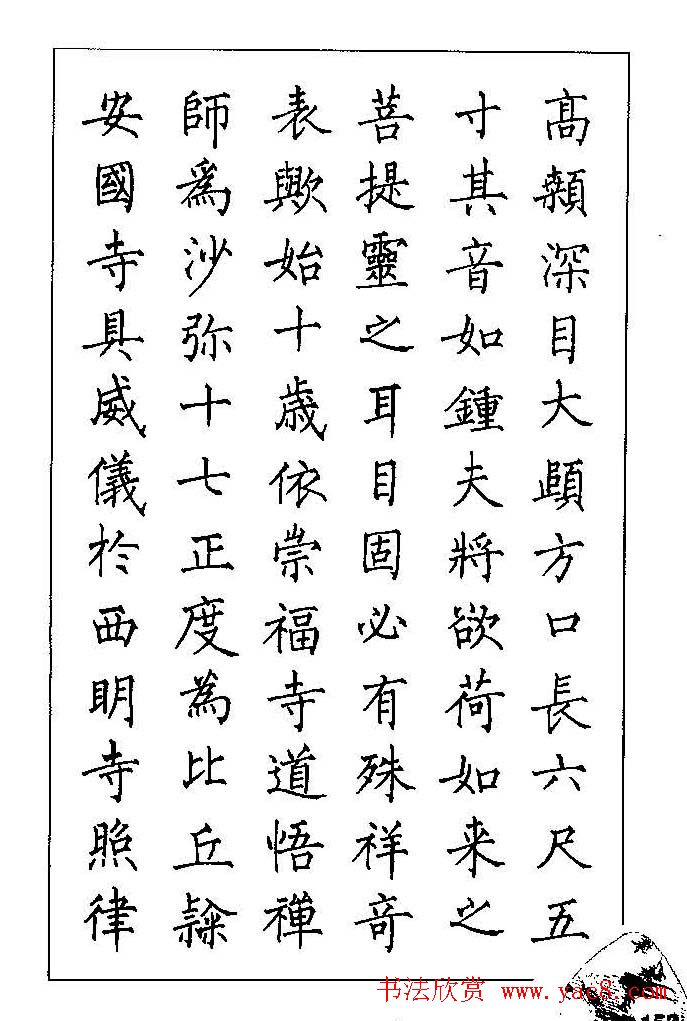 髙顙深目大頤方口長六尺五
寸其音如鍾夫將欲荷如来之
菩提靈之耳目固必有殊祥竒
表歟始十歳依崇福寺道悟禪
師爲沙弥十七正度為比丘隸
安國寺具威儀於西明寺照律
书法欣赏 www.yac8.com